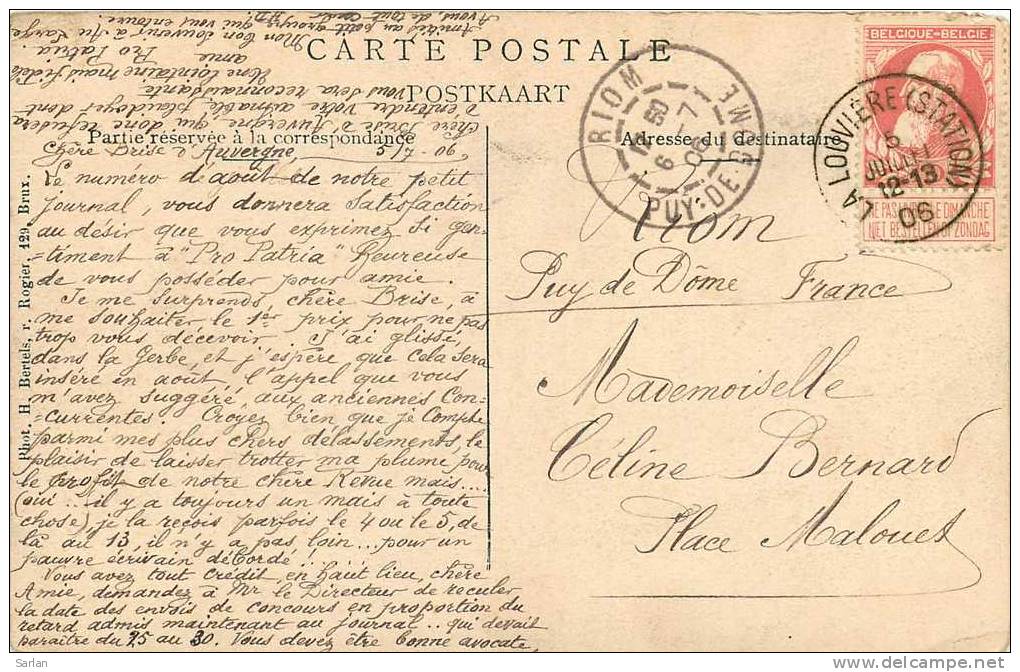 CARTE POSTALE
POSTKAART
Partie réservée à la correspondance
Adresse du destinataire
BELGIQUE-BELGIE
NE PAS LIVRER LE DIMANCHE
NIET BESTELLEN OP ZONDAG
LA LOUVIÈRE (STATION)
5
JUILLET
12-13
06
RIOM
6 7
06
PUY-DE-DOME
Phot. H. Bertels, r. Rogier, 129, Brux.
Chère Brise d'Auvergne, 5/7-06
Le numéro de août de notre petit
journal, vous donnera satisfaction
au désir que vous exprimez si gen-
=timent à "Pro Patria" Heureuse
de vous posséder pour amie.
Je me surprends, chère Brise, à
me souhaiter le 1er prix pour ne pas
trop vous décevoir. J'ai glissé,
dans la Gerbe, et j'espère que cela sera
inséré en août, l'appel que vous
m'avez suggéré, aux anciennes Con-
=currentes. Croyez bien que je compte
parmi mes plus chers délassements, le
plaisir de laisser trotter ma plume, pour
le profit de notre chère Revue mais....
(oui... il y a toujours un mais à toute
chose), je la reçois parfois le 4 ou le 5, de
là au 13, il n'y a pas loin... pour un
pauvre écrivain débordé!!
Vous avez tout crédit, en haut lieu, chère
Amie, demandez à Mr le Directeur de reculer
la date des envois de concours en proportion du
retard admis maintenant au journal.. qui devait
paraître du 25 au 30. Vous devez être bonne avocate,
Chère Brise d'Auvergne, qui donc refusera
d'entendre votre aimable plaidoyer dont
vous sera reconnaissante
Une lointaine mais fidèle
amie
Pro Patria.
Mon bon souvenir à Au Large
Amitiés au petit groupe qui vous entoure!
A vous, de tout cœur
Riom
Puy de Dôme France
Mademoiselle
Céline Bernard
Place Malouet
Sarlan
www.delcampe.net